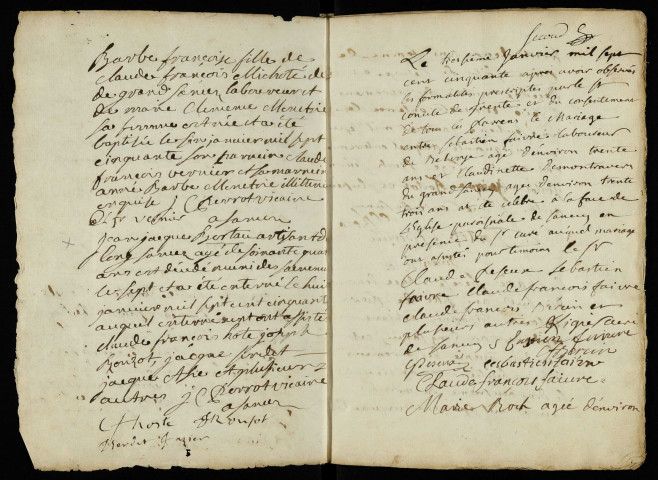 Barbe françoise fille de
claude françois Michoté de
de grand sancey laboureur et
de marie Clemence Menetrié
sa femme est née et a été
baptisée le six janvier mil sept
cinquante son parrein claude
françois vernier et sa marreine
anne Barbe Menetrié illitterée
enquise J C Perrot vicaire
C f vernier a sancey
jean jacque Bertau artisant de
long sancey agé de soixante quat
ans est décédé muni des sacremens
le sept et a été enterré le huit
janvier mil sept cent cinquante
auquel enterrement ont assisté
claude françois hote joseph
Rougot jacque bordet
jacque et plusieur
autres J C Perrot vicaire
a sancey
C f hoste J f Rougot
Bordet
second
Le troisième Janvier mil sept
cent cinquante apres avoir observés
les formalités prescriptes par le St
concile de trente et du consentement
de tous les parens le Mariage
entre sebastien faivre laboureur
de Belvoye agé denviron trente
ans et Claudinette demontravers
du grand sancey agée denviron trente
trois ans a été célébré à la face de
l'Eglise paroissiale de sancey en
presence du Sr curé auquel mariage
ont assistés pour temoins le Sr
Claude sebastien
faivre claude francois faivre
claude francois et
plusieurs autres
de sancey
sebastien faivre
Claude francois faivre
Marie Boch agée denviron